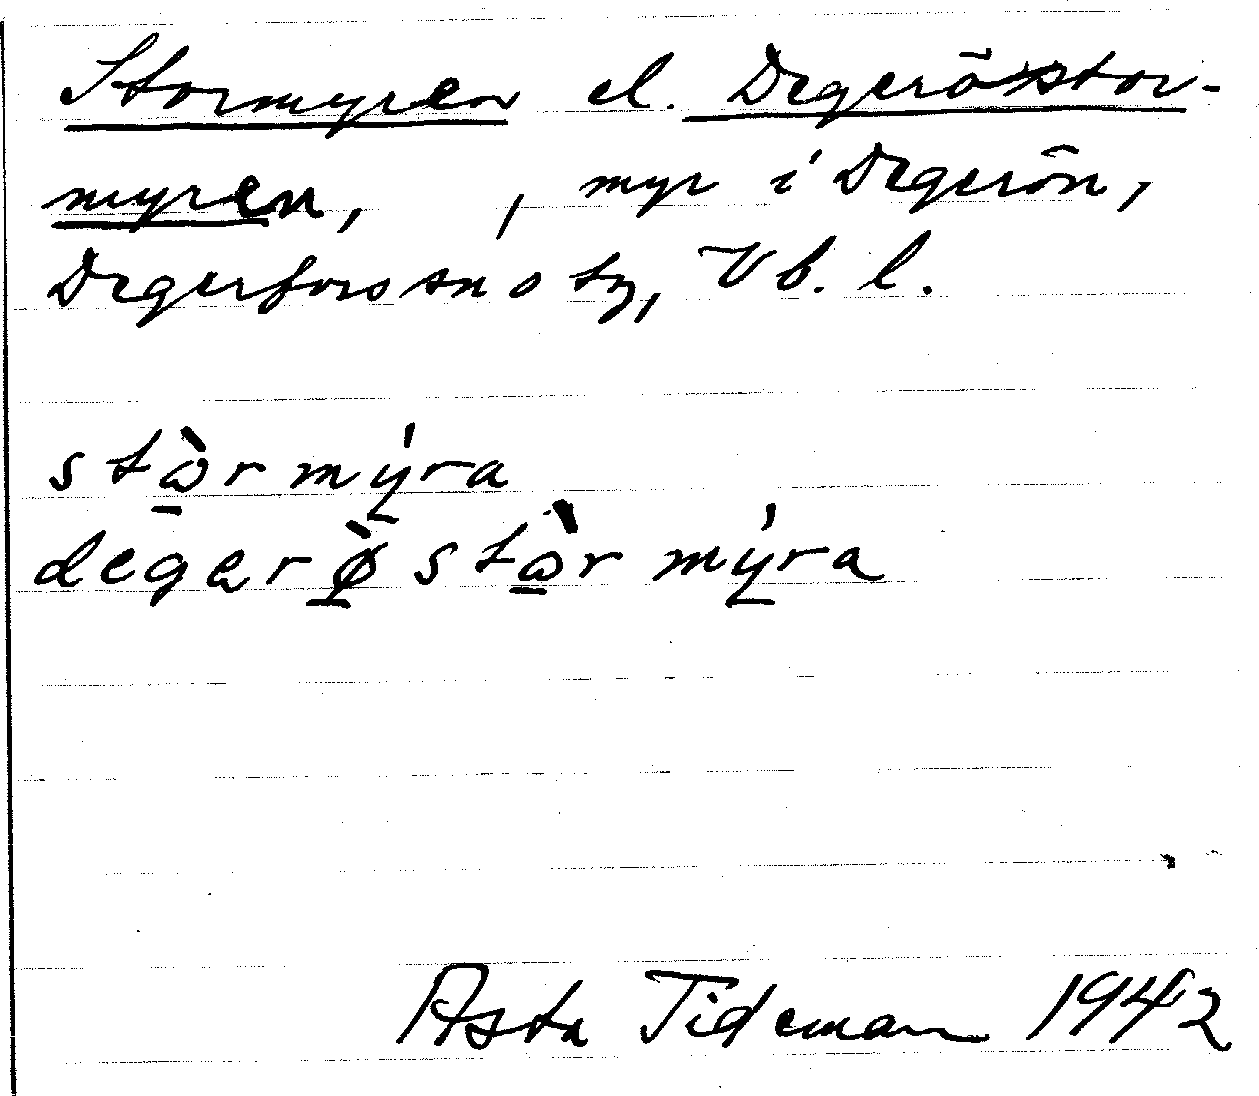 Stormyren el. Degeröstor-
myren, , myr i Degerön,
Degerfors sn o tg, Vb. l.
stὼrmýra
degerø̀stὼrmýra
Asta Tideman 1942